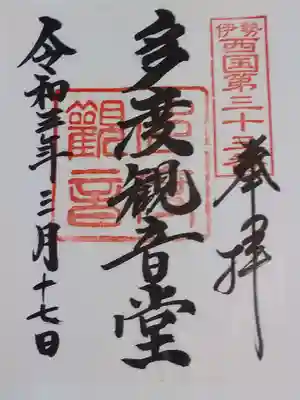 伊勢
西国第三十三番
奉拝
多度観音堂
觀音
令和三年三月十七日